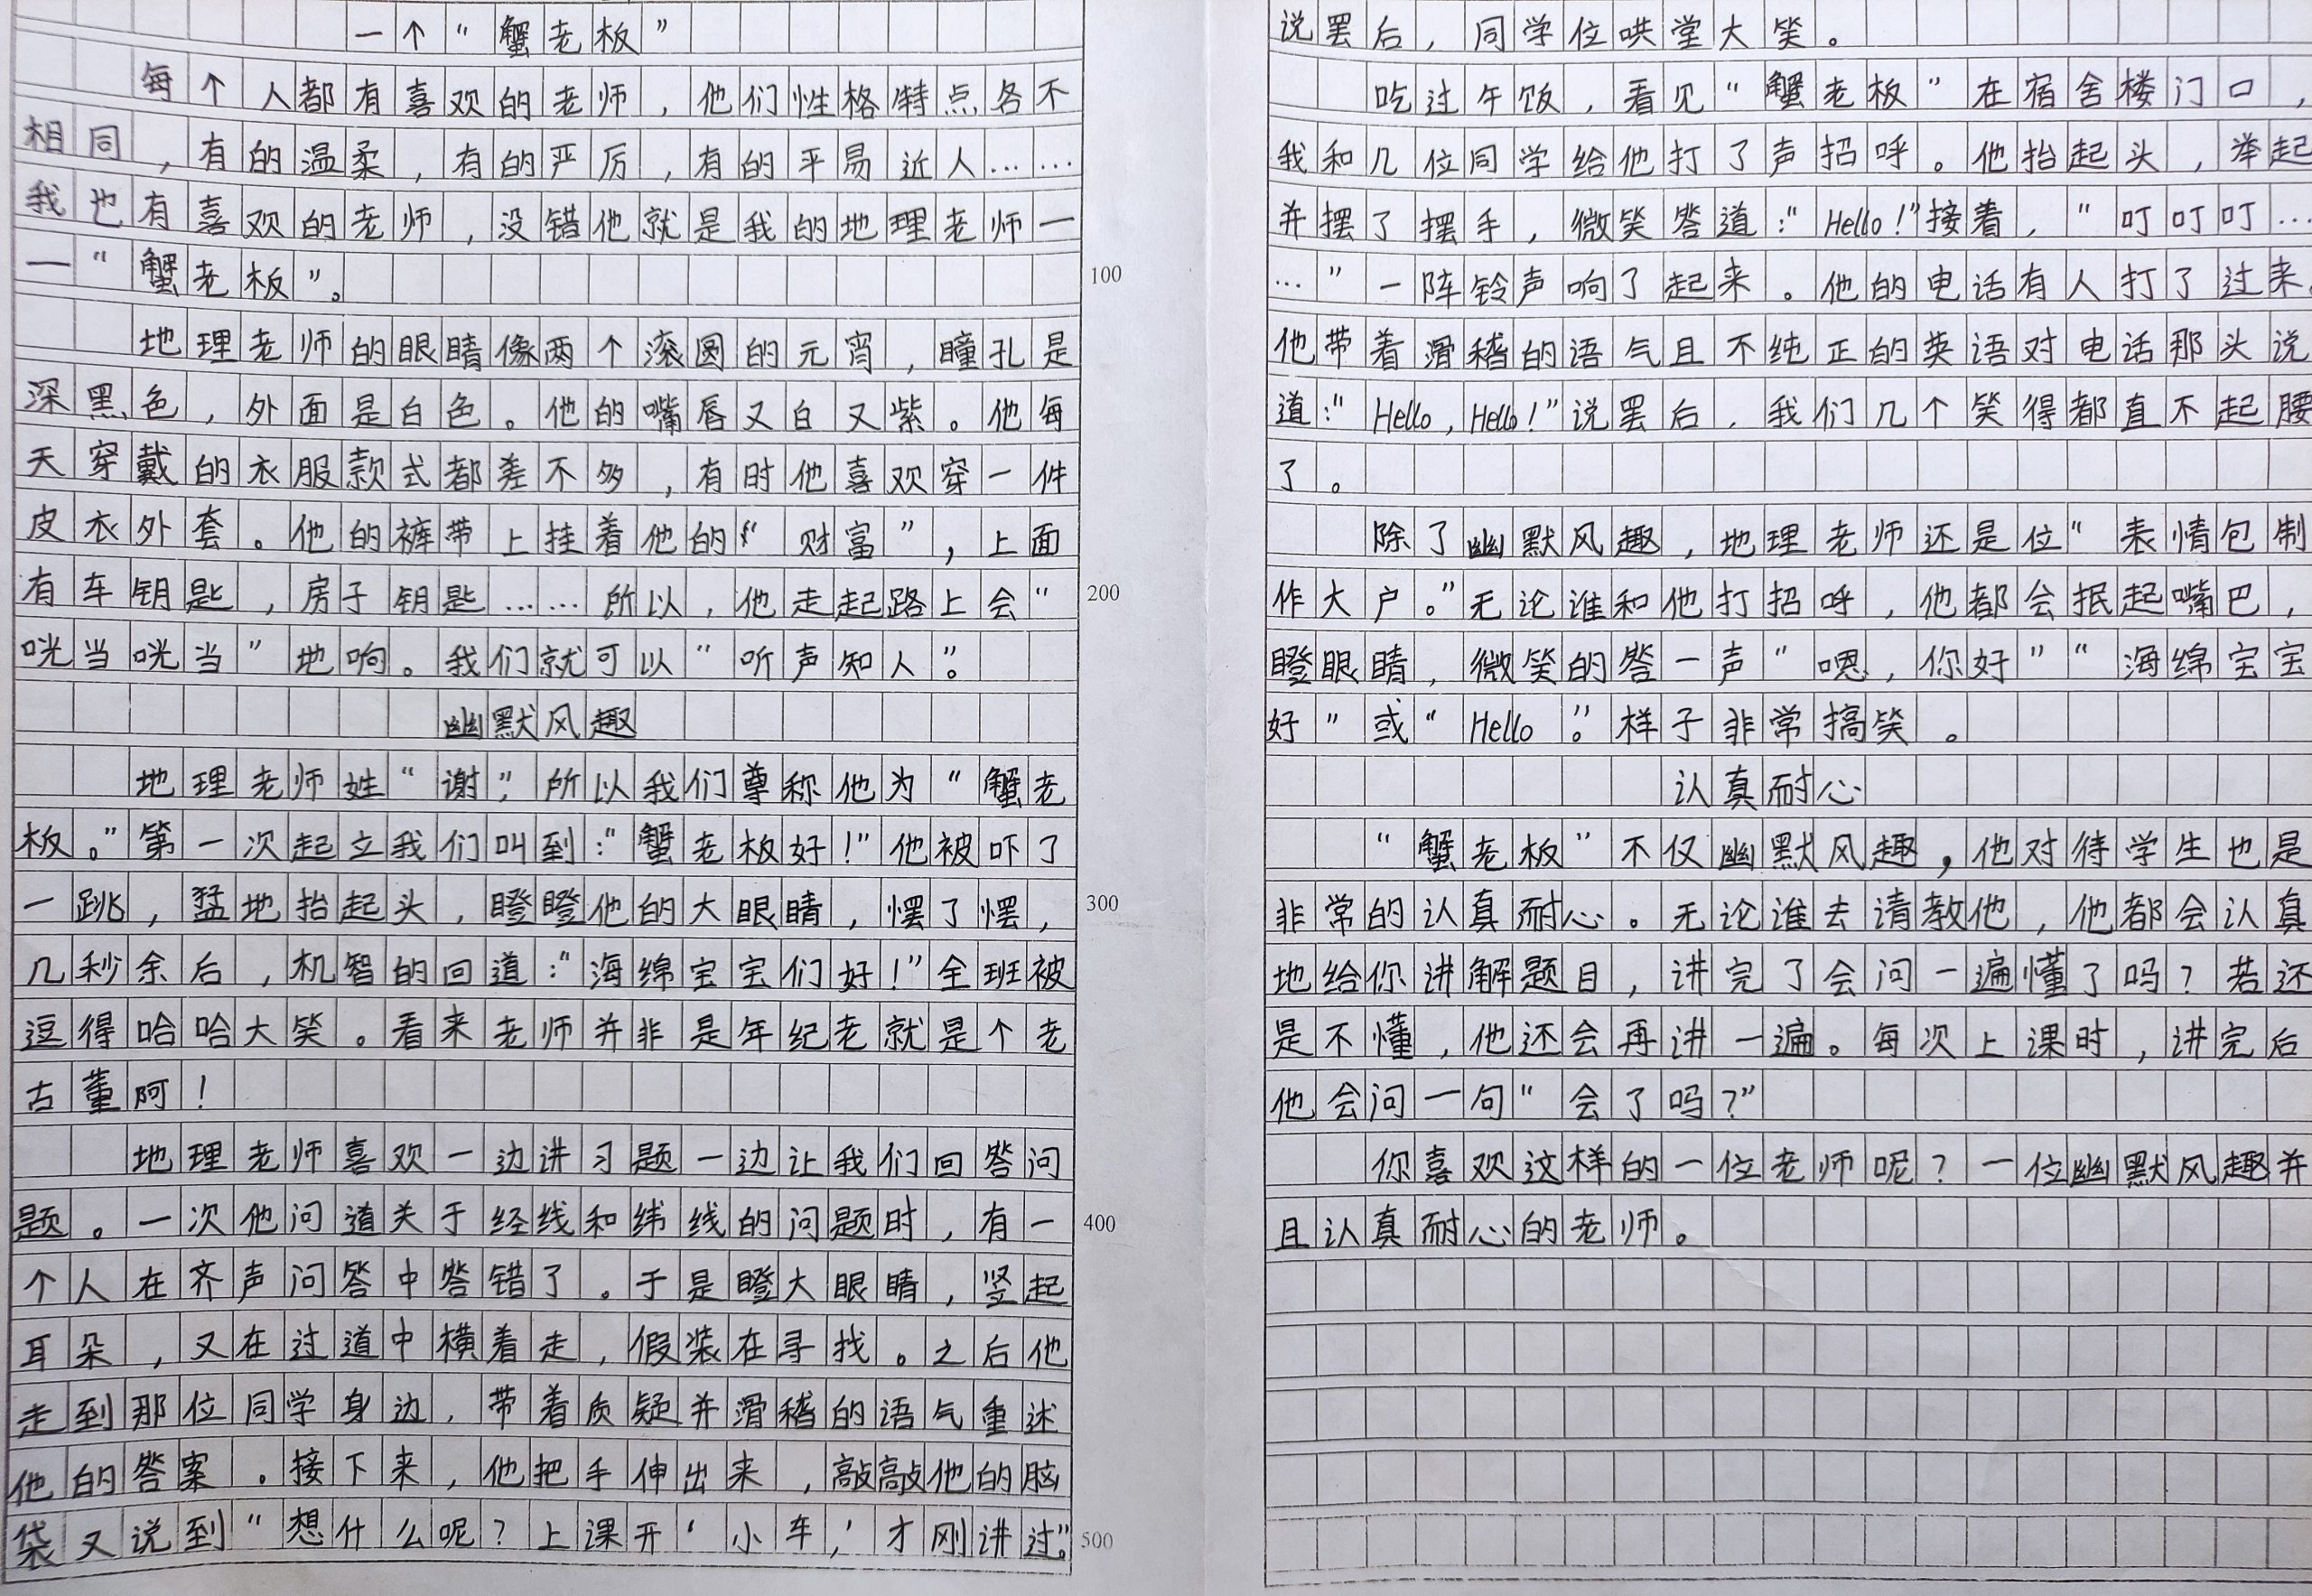 一个“蟹老板”
每个人都有喜欢的老师，他们性格特点各不
相同，有的温柔，有的严厉，有的平易近人……
我也有喜欢的老师，没错他就是我的地理老师一
一“蟹老板”。
100
地理老师的眼睛像两个滚圆的元宵，瞳孔是
深黑色，外面是白色。他的嘴唇又白又紫。他每
天穿戴的衣服款式都差不多，有时他喜欢穿一件
皮衣外套。他的裤带上挂着他的“财富”，上面
有车钥匙，房子钥匙……所以，他走起路上会“
200
咣当咣当”地响。我们就可以“听声知人”。
幽默风趣
地理老师姓“谢”，所以我们尊称他为“蟹老
板。”第一次起立我们叫到：“蟹老板好！”他被吓了
一跳，猛地抬起头，瞪瞪他的大眼睛，摆了摆，
300
几秒余后，机智的回道：“海绵宝宝们好！”全班被
逗得哈哈大笑。看来老师并非是年纪老就是个老
古董阿！
地理老师喜欢一边讲习题一边让我们回答问
题。一次他问道关于经线和纬线的问题时，有一
400
个人在齐声问答中答错了。于是瞪大眼睛，竖起
耳朵，又在过道中横着走，假装在寻找。之后他
走到那位同学身边，带着质疑并滑稽的语气重述
他的答案。接下来，他把手伸出来，敲敲他的脑
袋又说到“想什么呢？上课开‘小车，’才刚讲过。”
500
说罢后，同学位哄堂大笑。
吃过午饭，看见“蟹老板”在宿舍楼门口，
我和几位同学给他打了声招呼。他抬起头，举起
并摆了摆手，微笑答道：“Hello！”接着，“叮叮叮…
…”一阵铃声响了起来。他的电话有人打了过来。
他带着滑稽的语气且不纯正的英语对电话那头说
道：“Hello，Hello！”说罢后，我们几个笑得都直不起腰
了。
除了幽默风趣，地理老师还是位“表情包制
作大户。”无论谁和他打招呼，他都会抿起嘴巴，
瞪眼睛，微笑的答一声“嗯，你好”“海绵宝宝
好”或“Hello”。样子非常搞笑。
认真耐心
“蟹老板”不仅幽默风趣，他对待学生也是
非常的认真耐心。无论谁去请教他，他都会认真
地给你讲解题目，讲完了会问一遍懂了吗？若还
是不懂，他还会再讲一遍。每次上课时，讲完后
他会问一句“会了吗？”
你喜欢这样的一位老师呢？一位幽默风趣并
且认真耐心的老师。